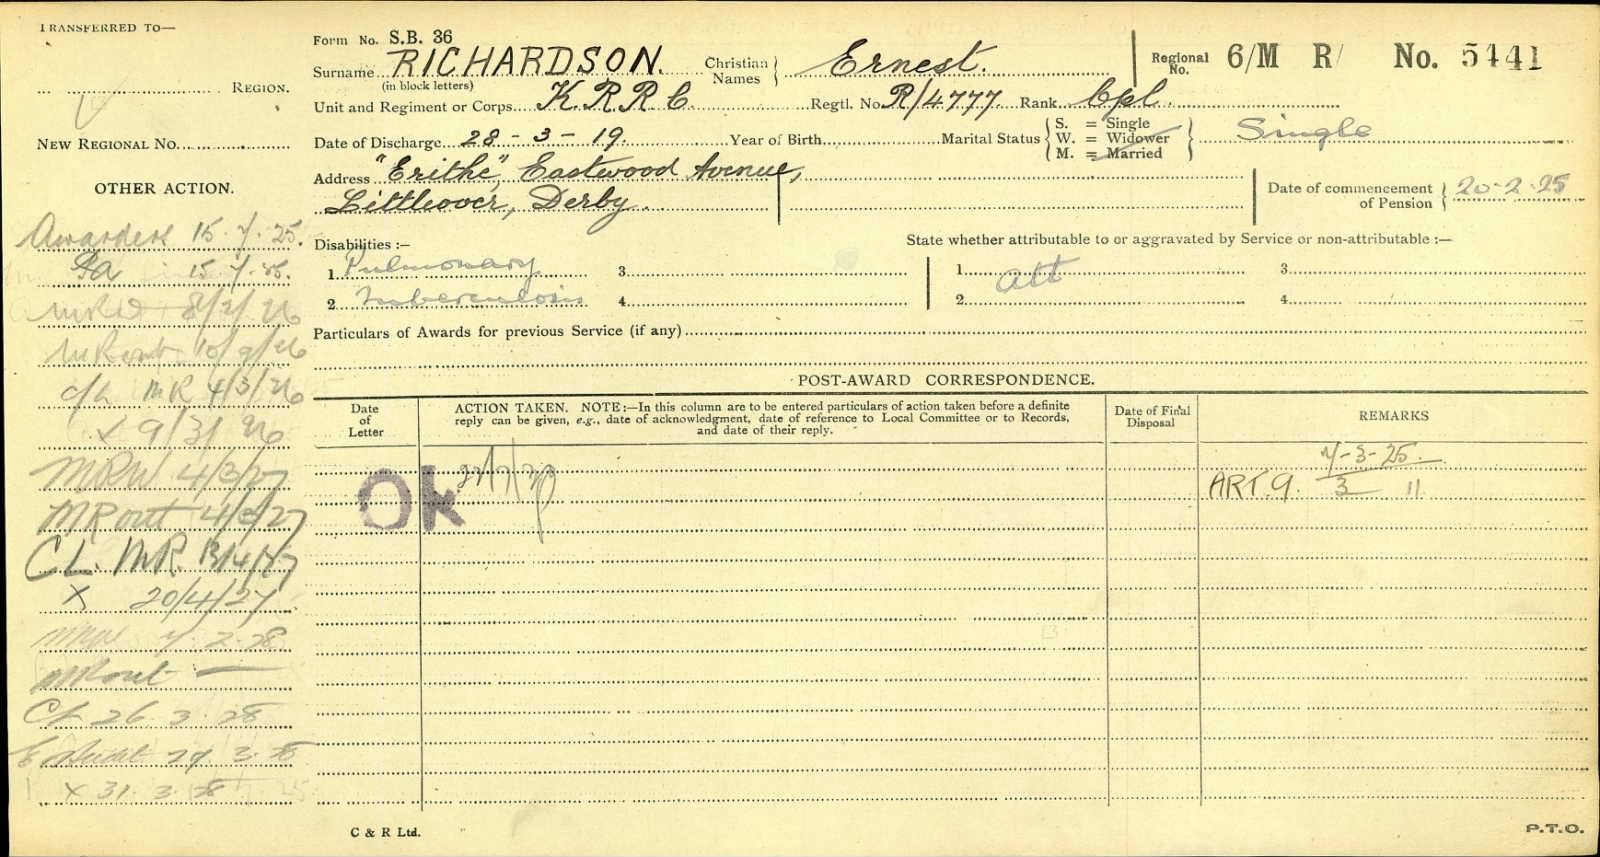 TRANSFERRED TO—
REGION.
NEW REGIONAL No.
OTHER ACTION.
Awarded 15.7.25.
15.7.25.
8/2/26
MR out 10/9/26
C/L MR 4/3/26
X 9/3/26
MRW 4/3/27
MR out 4/3/27
CL. MR. 13/4/27
X 20/4/27
7.2.28
MR out —
CL 26.3.28
29.3.28
X 31.3.28
Form No. S.B. 36
Surname RICHARDSON. Christian Names } Ernest. Regional No. 6/M R/ No. 5441
(in block letters)
Unit and Regiment or Corps K R R C Regtl. No. R/4777 Rank Cpl
Date of Discharge 28-3-19. Year of Birth Marital Status { S. = Single W. = Widower M. = Married } Single
Address "Erithe", Eastwood Avenue,
Littleover, Derby.
Date of commencement of Pension } 20-2-25
Disabilities :— State whether attributable to or aggravated by Service or non-attributable :—
1 Pulmonary 3 1 Att 3
2 Tuberculosis 4 2 4
Particulars of Awards for previous Service (if any)
POST-AWARD CORRESPONDENCE.
Date of Letter
ACTION TAKEN. NOTE:—In this column are to be entered particulars of action taken before a definite
reply can be given, e.g., date of acknowledgment, date of reference to Local Committee or to Records,
and date of their reply.
Date of Final Disposal
REMARKS
7-3-25.
ART. 9. 3 11
Ok
C & R Ltd.
P.T.O.